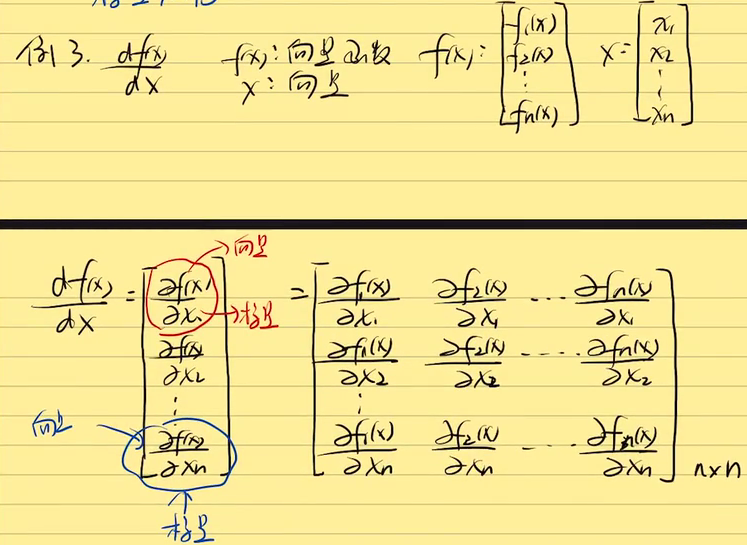 例3. df(x)/dx f(x): 向量函数 f(x): [f₁(x) f₂(x) ⋮ fn(x)] x = [x₁ x₂ ⋮ xn]
x: 向量
df(x)/dx = [∂f(x)/∂x₁ ∂f(x)/∂x₂ ⋮ ∂f(x)/∂xn] = [∂f₁(x)/∂x₁ ∂f₂(x)/∂x₁ ... ∂fn(x)/∂x₁
∂f₁(x)/∂x₂ ∂f₂(x)/∂x₂ ... ∂fn(x)/∂x₂
⋮
∂f₁(x)/∂xn ∂f₂(x)/∂xn ... ∂fn(x)/∂xn] n×n
向量
标量
向量
标量